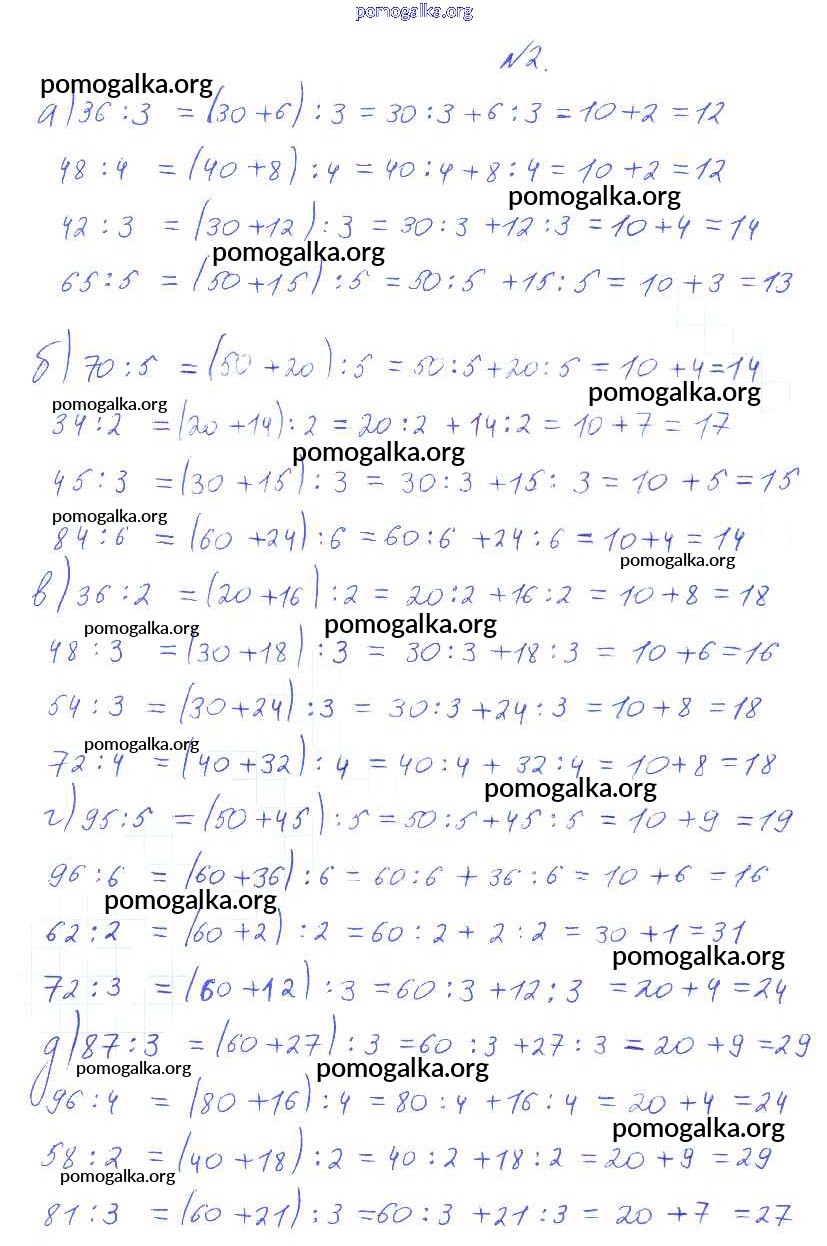 pomogalka.org
№2.
pomogalka.org
а) 36 : 3 = (30 + 6) : 3 = 30 : 3 + 6 : 3 = 10 + 2 = 12
48 : 4 = (40 + 8) : 4 = 40 : 4 + 8 : 4 = 10 + 2 = 12
pomogalka.org
42 : 3 = (30 + 12) : 3 = 30 : 3 + 12 : 3 = 10 + 4 = 14
pomogalka.org
65 : 5 = (50 + 15) : 5 = 50 : 5 + 15 : 5 = 10 + 3 = 13
б) 70 : 5 = (50 + 20) : 5 = 50 : 5 + 20 : 5 = 10 + 4 = 14
pomogalka.org
pomogalka.org
34 : 2 = (20 + 14) : 2 = 20 : 2 + 14 : 2 = 10 + 7 = 17
pomogalka.org
45 : 3 = (30 + 15) : 3 = 30 : 3 + 15 : 3 = 10 + 5 = 15
pomogalka.org
84 : 6 = (60 + 24) : 6 = 60 : 6 + 24 : 6 = 10 + 4 = 14
pomogalka.org
в) 36 : 2 = (20 + 16) : 2 = 20 : 2 + 16 : 2 = 10 + 8 = 18
pomogalka.org pomogalka.org
48 : 3 = (30 + 18) : 3 = 30 : 3 + 18 : 3 = 10 + 6 = 16
54 : 3 = (30 + 24) : 3 = 30 : 3 + 24 : 3 = 10 + 8 = 18
pomogalka.org
72 : 4 = (40 + 32) : 4 = 40 : 4 + 32 : 4 = 10 + 8 = 18
pomogalka.org
г) 95 : 5 = (50 + 45) : 5 = 50 : 5 + 45 : 5 = 10 + 9 = 19
96 : 6 = (60 + 36) : 6 = 60 : 6 + 36 : 6 = 10 + 6 = 16
pomogalka.org
62 : 2 = (60 + 2) : 2 = 60 : 2 + 2 : 2 = 30 + 1 = 31
pomogalka.org
72 : 3 = (60 + 12) : 3 = 60 : 3 + 12 : 3 = 20 + 4 = 24
д) 87 : 3 = (60 + 27) : 3 = 60 : 3 + 27 : 3 = 20 + 9 = 29
pomogalka.org pomogalka.org
96 : 4 = (80 + 16) : 4 = 80 : 4 + 16 : 4 = 20 + 4 = 24
pomogalka.org
58 : 2 = (40 + 18) : 2 = 40 : 2 + 18 : 2 = 20 + 9 = 29
pomogalka.org
81 : 3 = (60 + 21) : 3 = 60 : 3 + 21 : 3 = 20 + 7 = 27